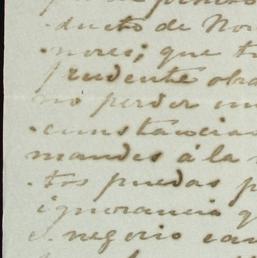 ducto de Nor
nores; que t
prudente obra
no perder un
cunstancias
mandes á la
tos puedas p
ignorancia q
negocio con